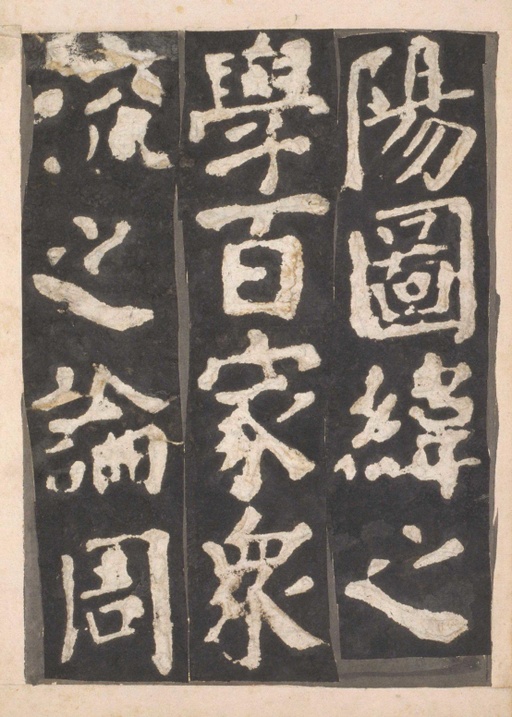 陽圖緯之
學百家眾
流之論周